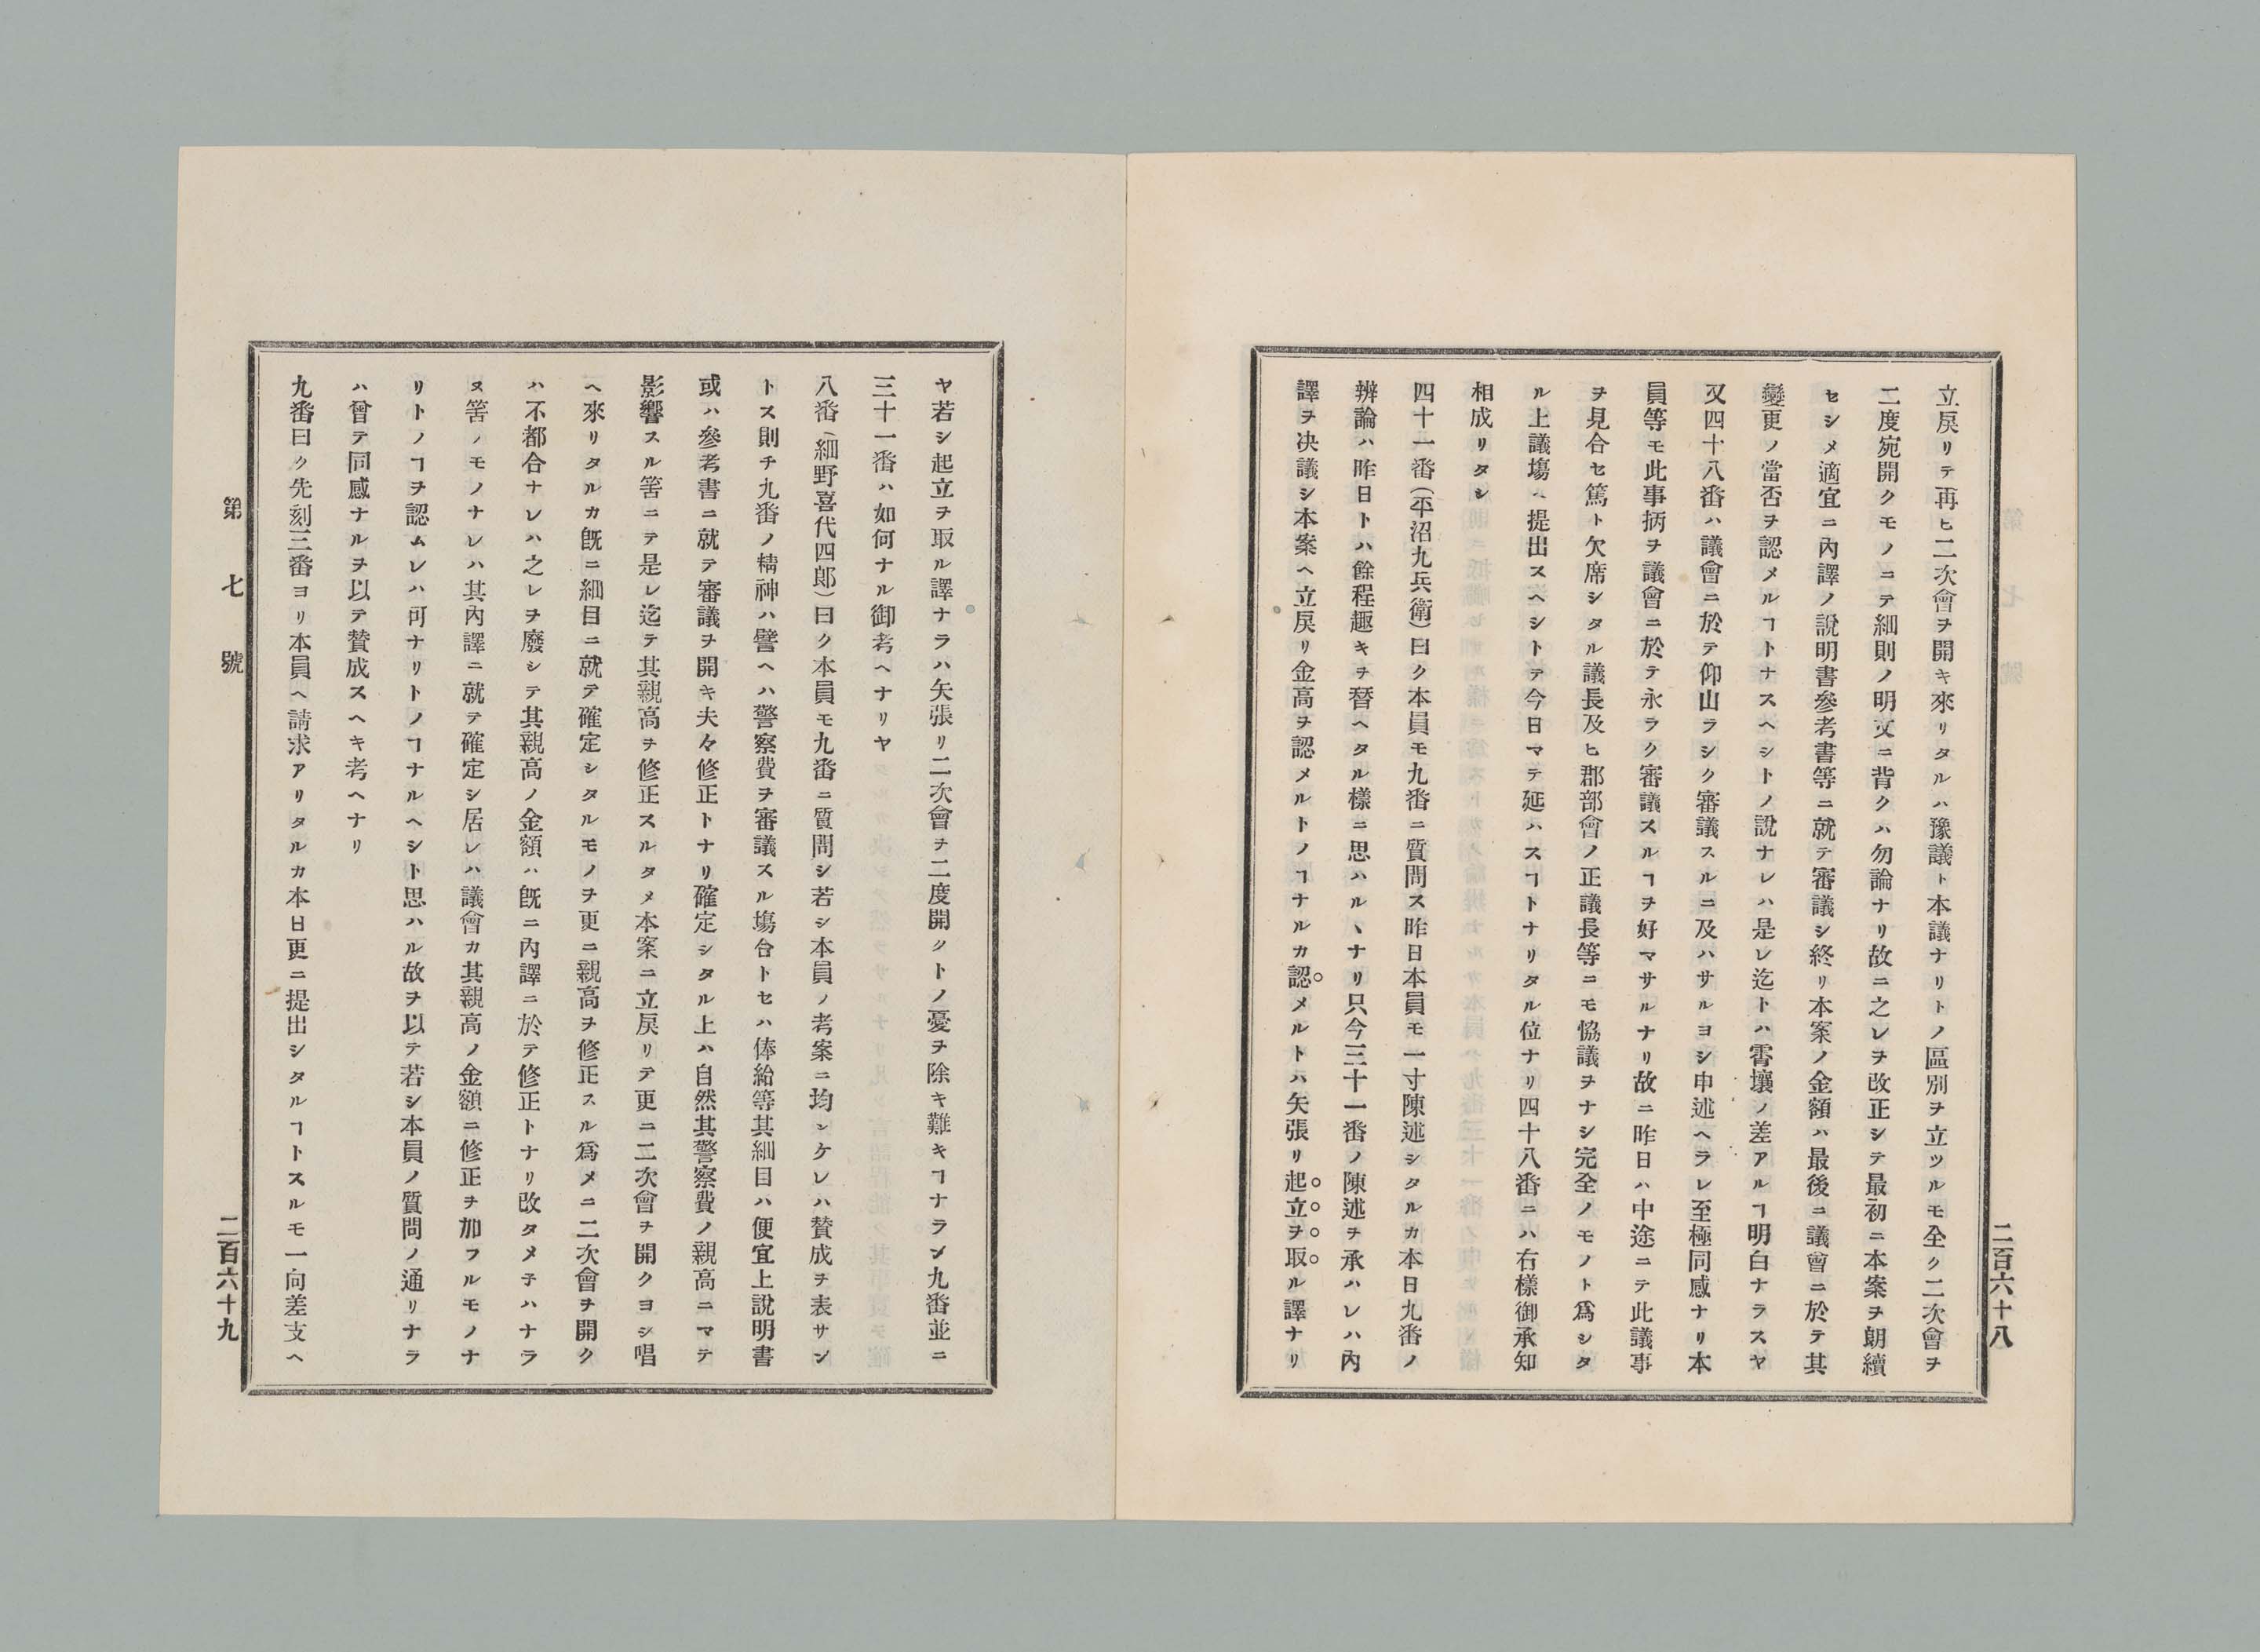 立戾リテ再ヒ二次會ヲ開キ來リタルハ豫議ト本議ナリトノ區別ヲ立ツルモ全ク二次會ヲ
二度宛開クモノニテ細則ノ明文ニ背クハ勿論ナリ故ニ之レヲ改正シテ最初ニ本案ヲ朗續
セシメ適宜ニ內譯ノ說明書參考書等ニ就テ審議シ終リ本案ノ金額ハ最後ニ議會ニ於テ其
變更ノ當否ヲ認メルヿトナスヘシトノ說ナレハ是レ迄トハ霄壤ノ差アルヿ明白ナラスヤ
又四十八番ハ議會ニ於テ仰山ラシク審議スルニ及ハサルヨシ申述ヘラレ至極同感ナリ本
員等モ此事抦ヲ議會ニ於テ永ラク審議スルヿヲ好マサルナリ故ニ昨日ハ中途ニテ此議事
ヲ見合セ篤ト欠席シタル議長及ヒ郡部會ノ正議長等ニモ恊議ヲナシ完全ノモノト爲シタ
ル上議塲ヘ提出スヘシトテ今日マテ延ハスヿトナリタル位ナリ四十八番ニハ右樣御承知
相成リタシ
四十一番（平沼九兵衛）曰ク本員モ九番ニ質問ス昨日本員モ一寸陳述シタルカ本日九番ノ
辨論ハ昨日トハ餘程趣キヲ替ヘタル樣ニ思ハルヽナリ只今三十一番ノ陳述ヲ承ハレハ內
譯ヲ決議シ本案ヘ立戾リ金高ヲ認メルトノヿナルカ認メルトハ矢張リ起立ヲ取ル譯ナリ
二百六十八
ヤ若シ起立ヲ取ル譯ナラハ矢張リ二次會ヲ二度開クトノ憂ヲ除キ難キヿナラン九番並ニ
三十一番ハ如何ナル御考ヘナリヤ
八番（細野喜代四郞）曰ク本員モ九番ニ質問シ若シ本員ノ考案ニ均シケレハ賛成ヲ表サン
トス則チ九番ノ精神ハ譬ヘハ警察費ヲ審議スル塲合トセハ俸給等其細目ハ便宜上說明書
或ハ參考書ニ就テ審議ヲ開キ夫々修正トナリ確定シタル上ハ自然其警察費ノ親高ニマテ
影響スル筈ニテ是レ迄テ其親高ヲ修正スルタメ本案ニ立戾リテ更ニ二次會ヲ開クヨシ唱
ヘ來リタルカ旣ニ細目ニ就テ確定シタルモノヲ更ニ親高ヲ修正スル爲メニ二次會ヲ開ク
ハ不都合ナレハ之レヲ廢シテ其親高ノ金額ハ旣ニ內譯ニ於テ修正トナリ改タメ子ハナラ
ヌ筈ノモノナレハ其內譯ニ就テ確定シ居レハ議會カ其親高ノ金額ニ修正ヲ加フルモノナ
リトノヿヲ認ムレハ可ナリトノヿナルヘシト思ハル故ヲ以テ若シ本員ノ質問ノ通リナラ
ハ曾テ同感ナルヲ以テ賛成スヘキ考ヘナリ
九番曰ク先刻三番ヨリ本員ヘ請求アリタルカ本日更ニ提出シタルヿトスルモ一向差支ヘ
第七號
二百六十九